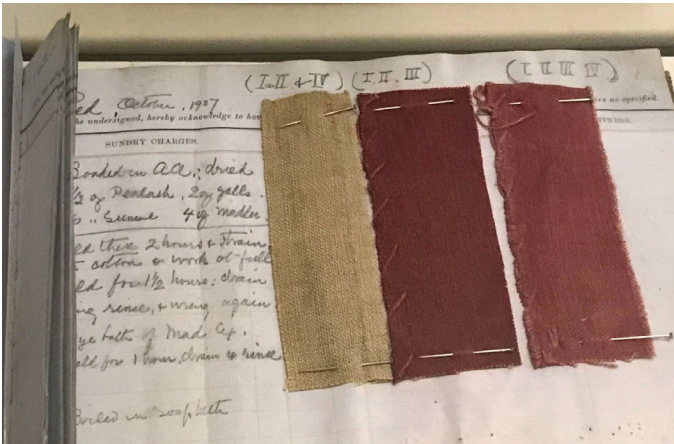 (I. II & IV) (I. II. III) (I II III IV)
Red, October, 1907
he undersigned, hereby acknowledge to hav
res as specified.
SUNDRY CHARGES.
Boaded in AA.; dried
1/2 oz Pearlash, 2oz galls.
" Sumac 4 oz madder
2 hours & strain,
cotton & work at full
for 1 1/2 hours: drain
rinse, & wring again.
bath of Mad
for 1 hour, drain & rinse
Boiled in soap bath